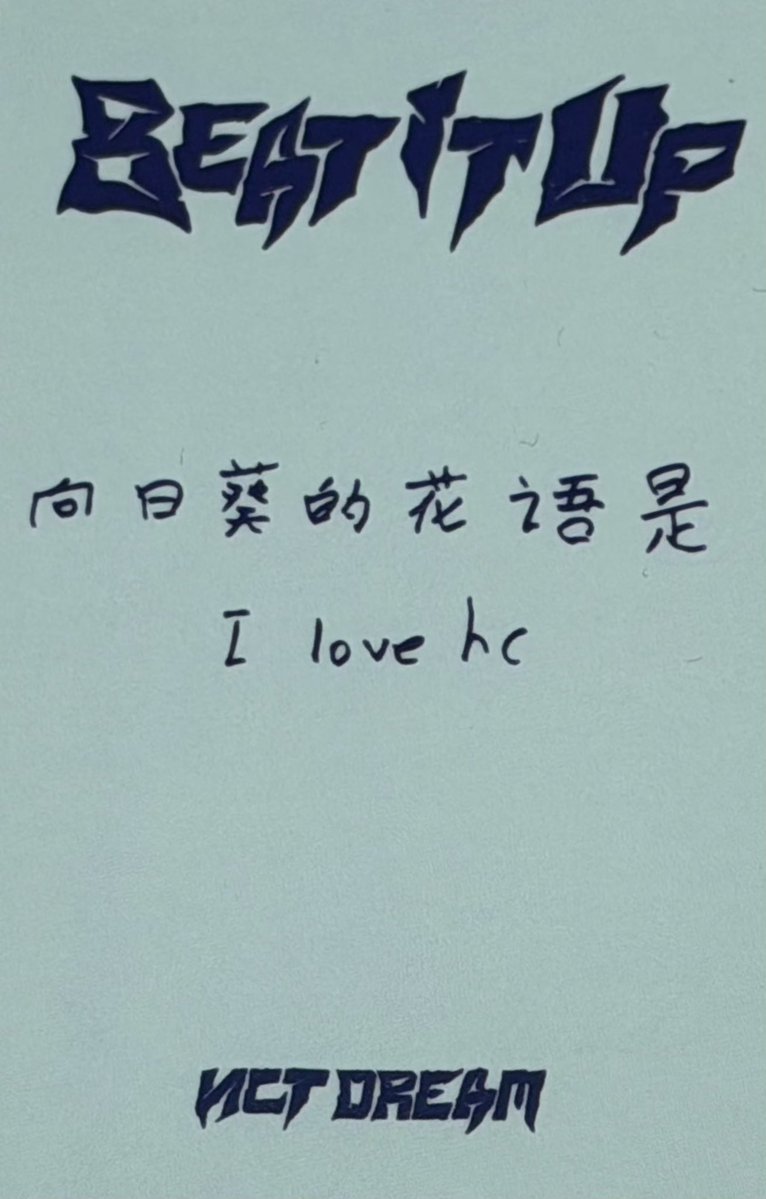 Beat It Up
向日葵的花语是
I love hc
NCT DREAM